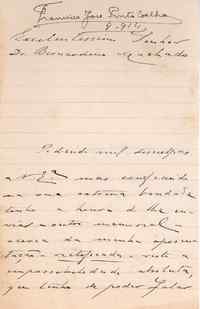 Francisco José Pinto Coelho
9-914
Excelentissimo Senhor
Dr. Bernardino Machado
Pedindo mil desculpas
a V. Exa mas confiando
na sua extrema bondade
tenho a honra de lhe en-
viar o outro memorial
acerca da minha aposen-
tação - rectificado - visto a
impossibilidade absoluta,
que tenho de poder falar